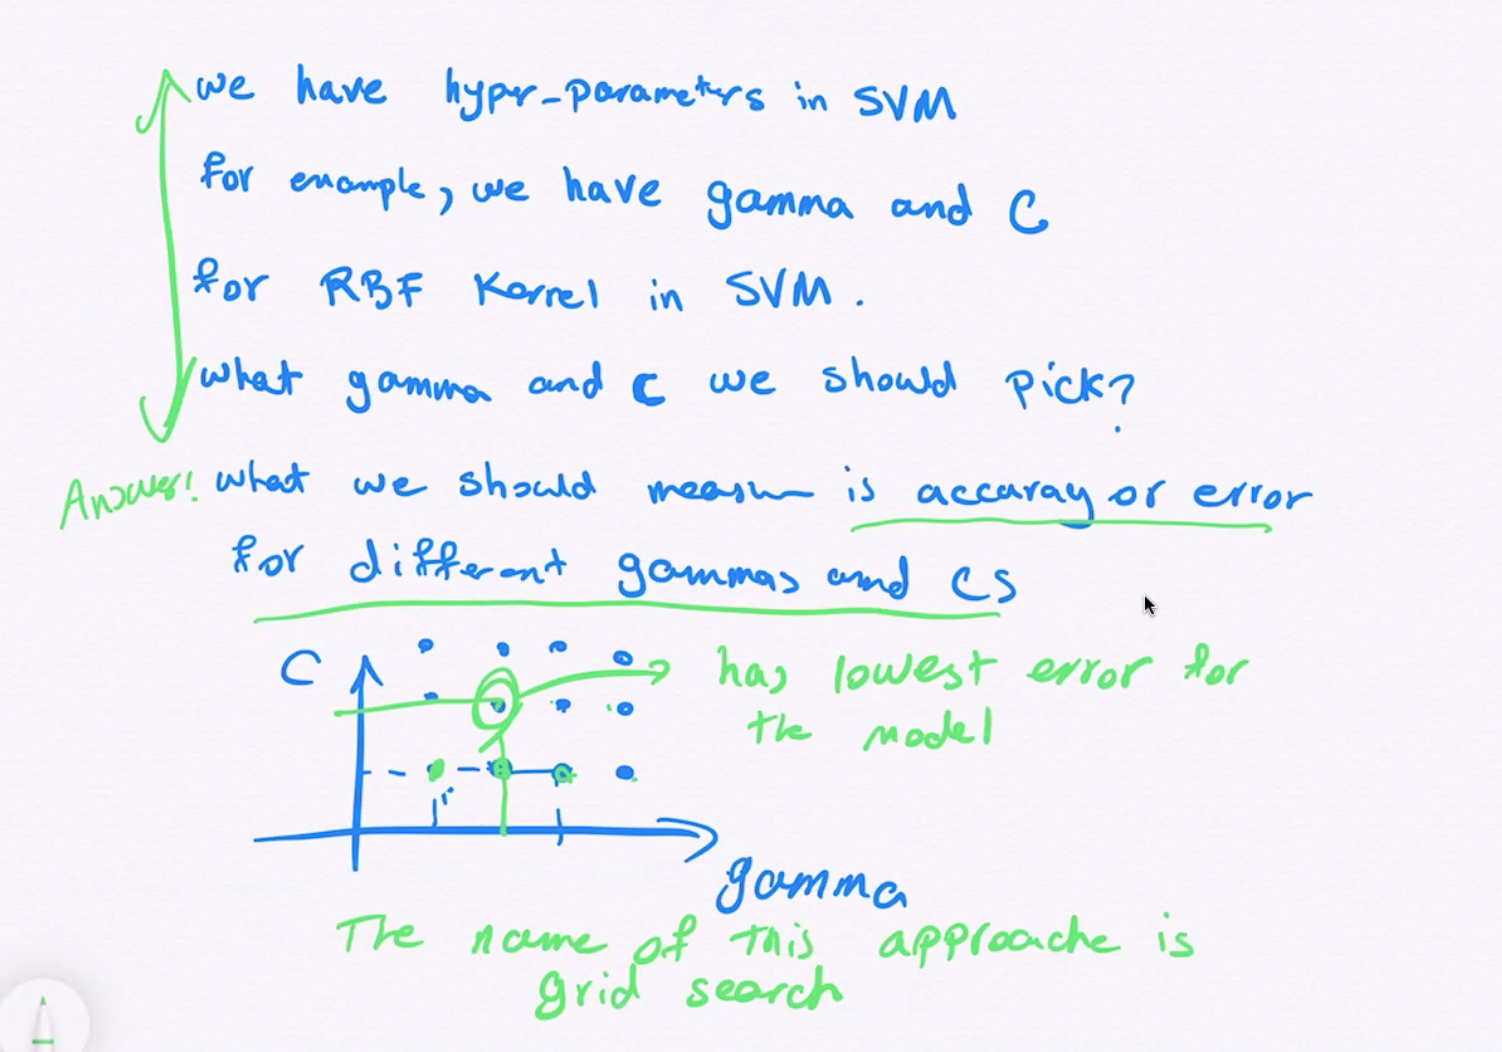 we have hyper-parameters in SVM
for example, we have gamma and C
for RBF Kernel in SVM.
what gamma and C we should pick?
Answer! what we should measure is accuracy or error
for different gammas and Cs
C
has lowest error for
the model
gamma
The name of this approache is
grid search